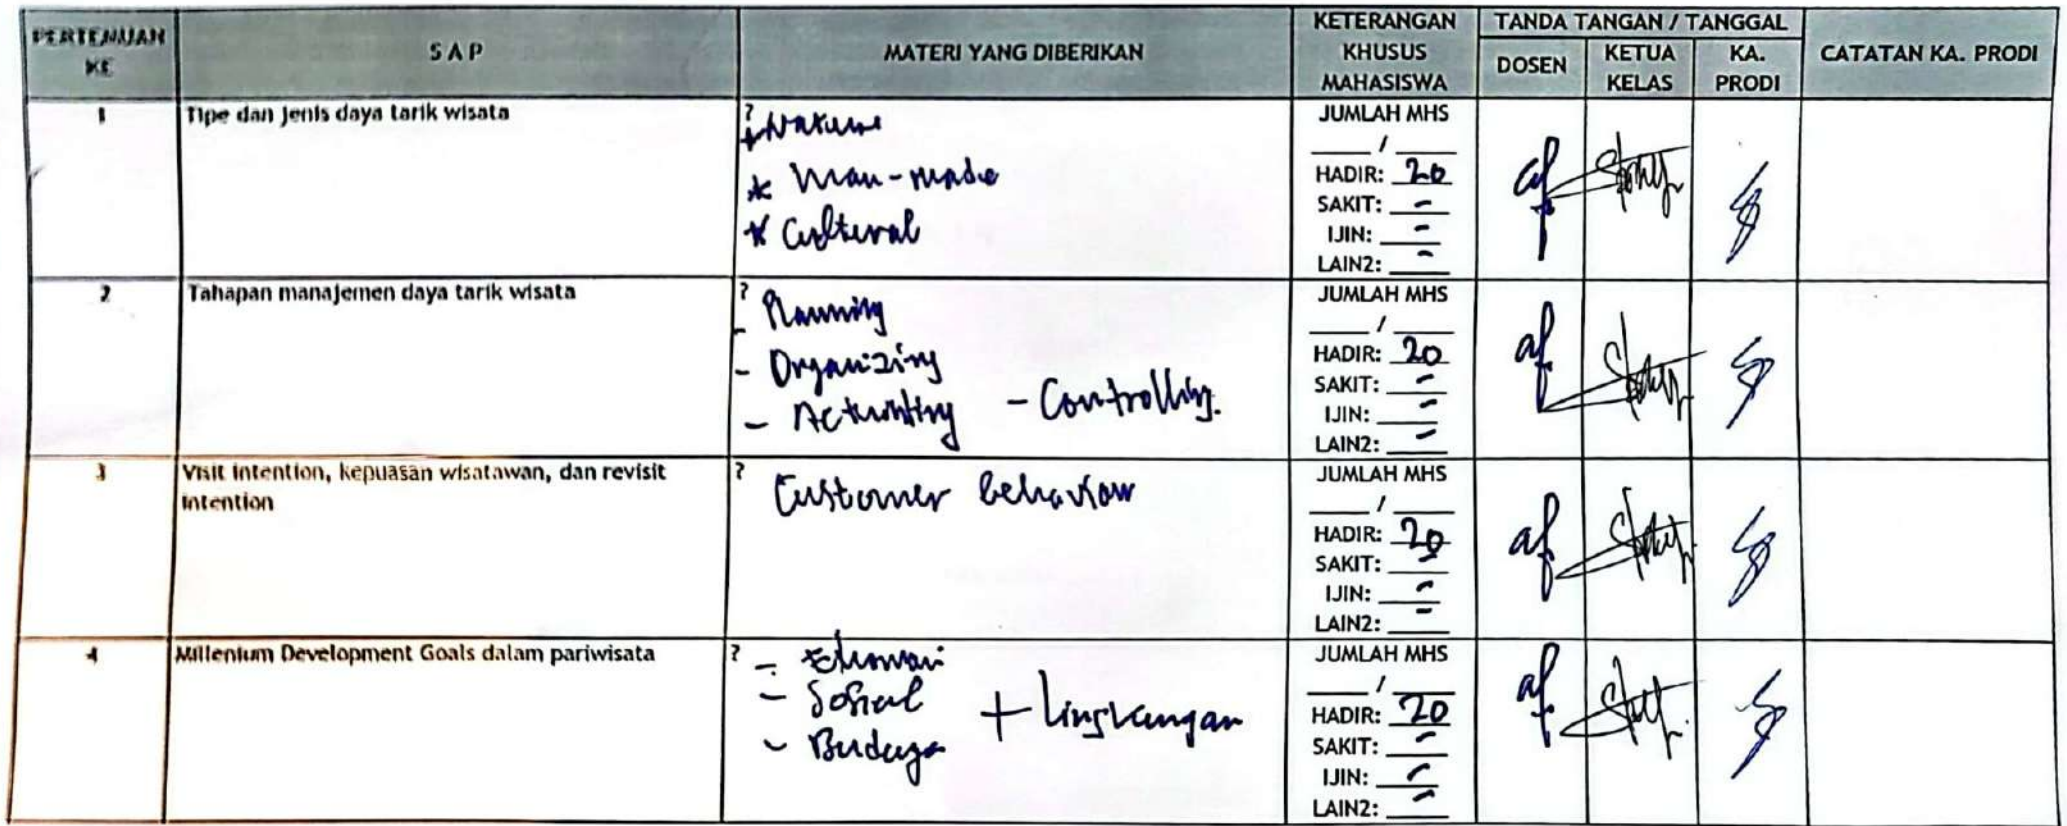 PERTEMUAN KE
SAP
MATERI YANG DIBERIKAN
KETERANGAN KHUSUS MAHASISWA
TANDA TANGAN / TANGGAL
DOSEN
KETUA KELAS
KA. PRODI
CATATAN KA. PRODI
1
Tipe dan jenis daya tarik wisata
?
* Nature
* Man-made
* Cultural
JUMLAH MHS
___ / ___
HADIR: 20
SAKIT: -
IJIN: -
LAIN2: -
2
Tahapan manajemen daya tarik wisata
?
- Planning
- Organizing
- Actuating - Controlling.
JUMLAH MHS
___ / ___
HADIR: 20
SAKIT: -
IJIN: -
LAIN2: -
3
Visit intention, kepuasan wisatawan, dan revisit
intention
?
Customer behaviour
JUMLAH MHS
___ / ___
HADIR: 20
SAKIT: -
IJIN: -
LAIN2: -
4
Millenium Development Goals dalam pariwisata
?
- Ekonomi
- Sosial + lingkungan
- Budaya
JUMLAH MHS
___ / ___
HADIR: 20
SAKIT: -
IJIN: -
LAIN2: -